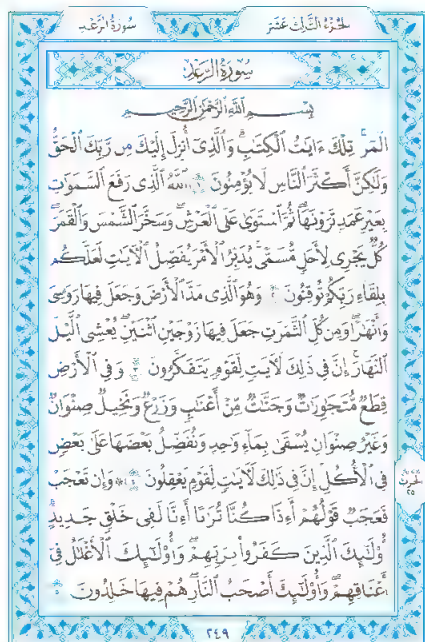 سُورَةُ الرَّعْدِ
الجُزْءُ الثَّالِثَ عَشَرَ
سُورَةُ الرَّعْدِ
بِسْمِ اللَّهِ الرَّحْمَٰنِ الرَّحِيمِ
الٓمٓر ۚ تِلْكَ ءَايَٰتُ ٱلْكِتَٰبِ ۗ وَٱلَّذِىٓ أُنزِلَ إِلَيْكَ مِن رَّبِّكَ ٱلْحَقُّ
وَلَٰكِنَّ أَكْثَرَ ٱلنَّاسِ لَا يُؤْمِنُونَ ١ ٱللَّهُ ٱلَّذِى رَفَعَ ٱلسَّمَٰوَٰتِ
بِغَيْرِ عَمَدٍ تَرَوْنَهَا ۖ ثُمَّ ٱسْتَوَىٰ عَلَى ٱلْعَرْشِ ۖ وَسَخَّرَ ٱلشَّمْسَ وَٱلْقَمَرَ ۖ
كُلٌّ يَجْرِى لِأَجَلٍ مُّسَمًّى ۚ يُدَبِّرُ ٱلْأَمْرَ يُفَصِّلُ ٱلْءَايَٰتِ لَعَلَّكُم
بِلِقَآءِ رَبِّكُمْ تُوقِنُونَ ٢ وَهُوَ ٱلَّذِى مَدَّ ٱلْأَرْضَ وَجَعَلَ فِيهَا رَوَٰسِىَ
وَأَنْهَٰرًا ۖ وَمِن كُلِّ ٱلثَّمَرَٰتِ جَعَلَ فِيهَا زَوْجَيْنِ ٱثْنَيْنِ ۖ يُغْشِى ٱلَّيْلَ
ٱلنَّهَارَ ۚ إِنَّ فِى ذَٰلِكَ لَءَايَٰتٍ لِّقَوْمٍ يَتَفَكَّرُونَ ٣ وَفِى ٱلْأَرْضِ
قِطَعٌ مُّتَجَٰوِرَٰتٌ وَجَنَّٰتٌ مِّنْ أَعْنَٰبٍ وَزَرْعٌ وَنَخِيلٌ صِنْوَانٌ
وَغَيْرُ صِنْوَانٍ يُسْقَىٰ بِمَآءٍ وَٰحِدٍ وَنُفَضِّلُ بَعْضَهَا عَلَىٰ بَعْضٍ
فِى ٱلْأُكُلِ ۚ إِنَّ فِى ذَٰلِكَ لَءَايَٰتٍ لِّقَوْمٍ يَعْقِلُونَ ٤ وَإِن تَعْجَبْ
فَعَجَبٌ قَوْلُهُمْ أَءِذَا كُنَّا تُرَٰبًا أَءِنَّا لَفِى خَلْقٍ جَدِيدٍ ۗ
أُو۟لَٰٓئِكَ ٱلَّذِينَ كَفَرُوا۟ بِرَبِّهِمْ ۖ وَأُو۟لَٰٓئِكَ ٱلْأَغْلَٰلُ فِىٓ
أَعْنَاقِهِمْ ۖ وَأُو۟لَٰٓئِكَ أَصْحَٰبُ ٱلنَّارِ ۖ هُمْ فِيهَا خَٰلِدُونَ ٥
الحزب
٢٥
٢٤٩